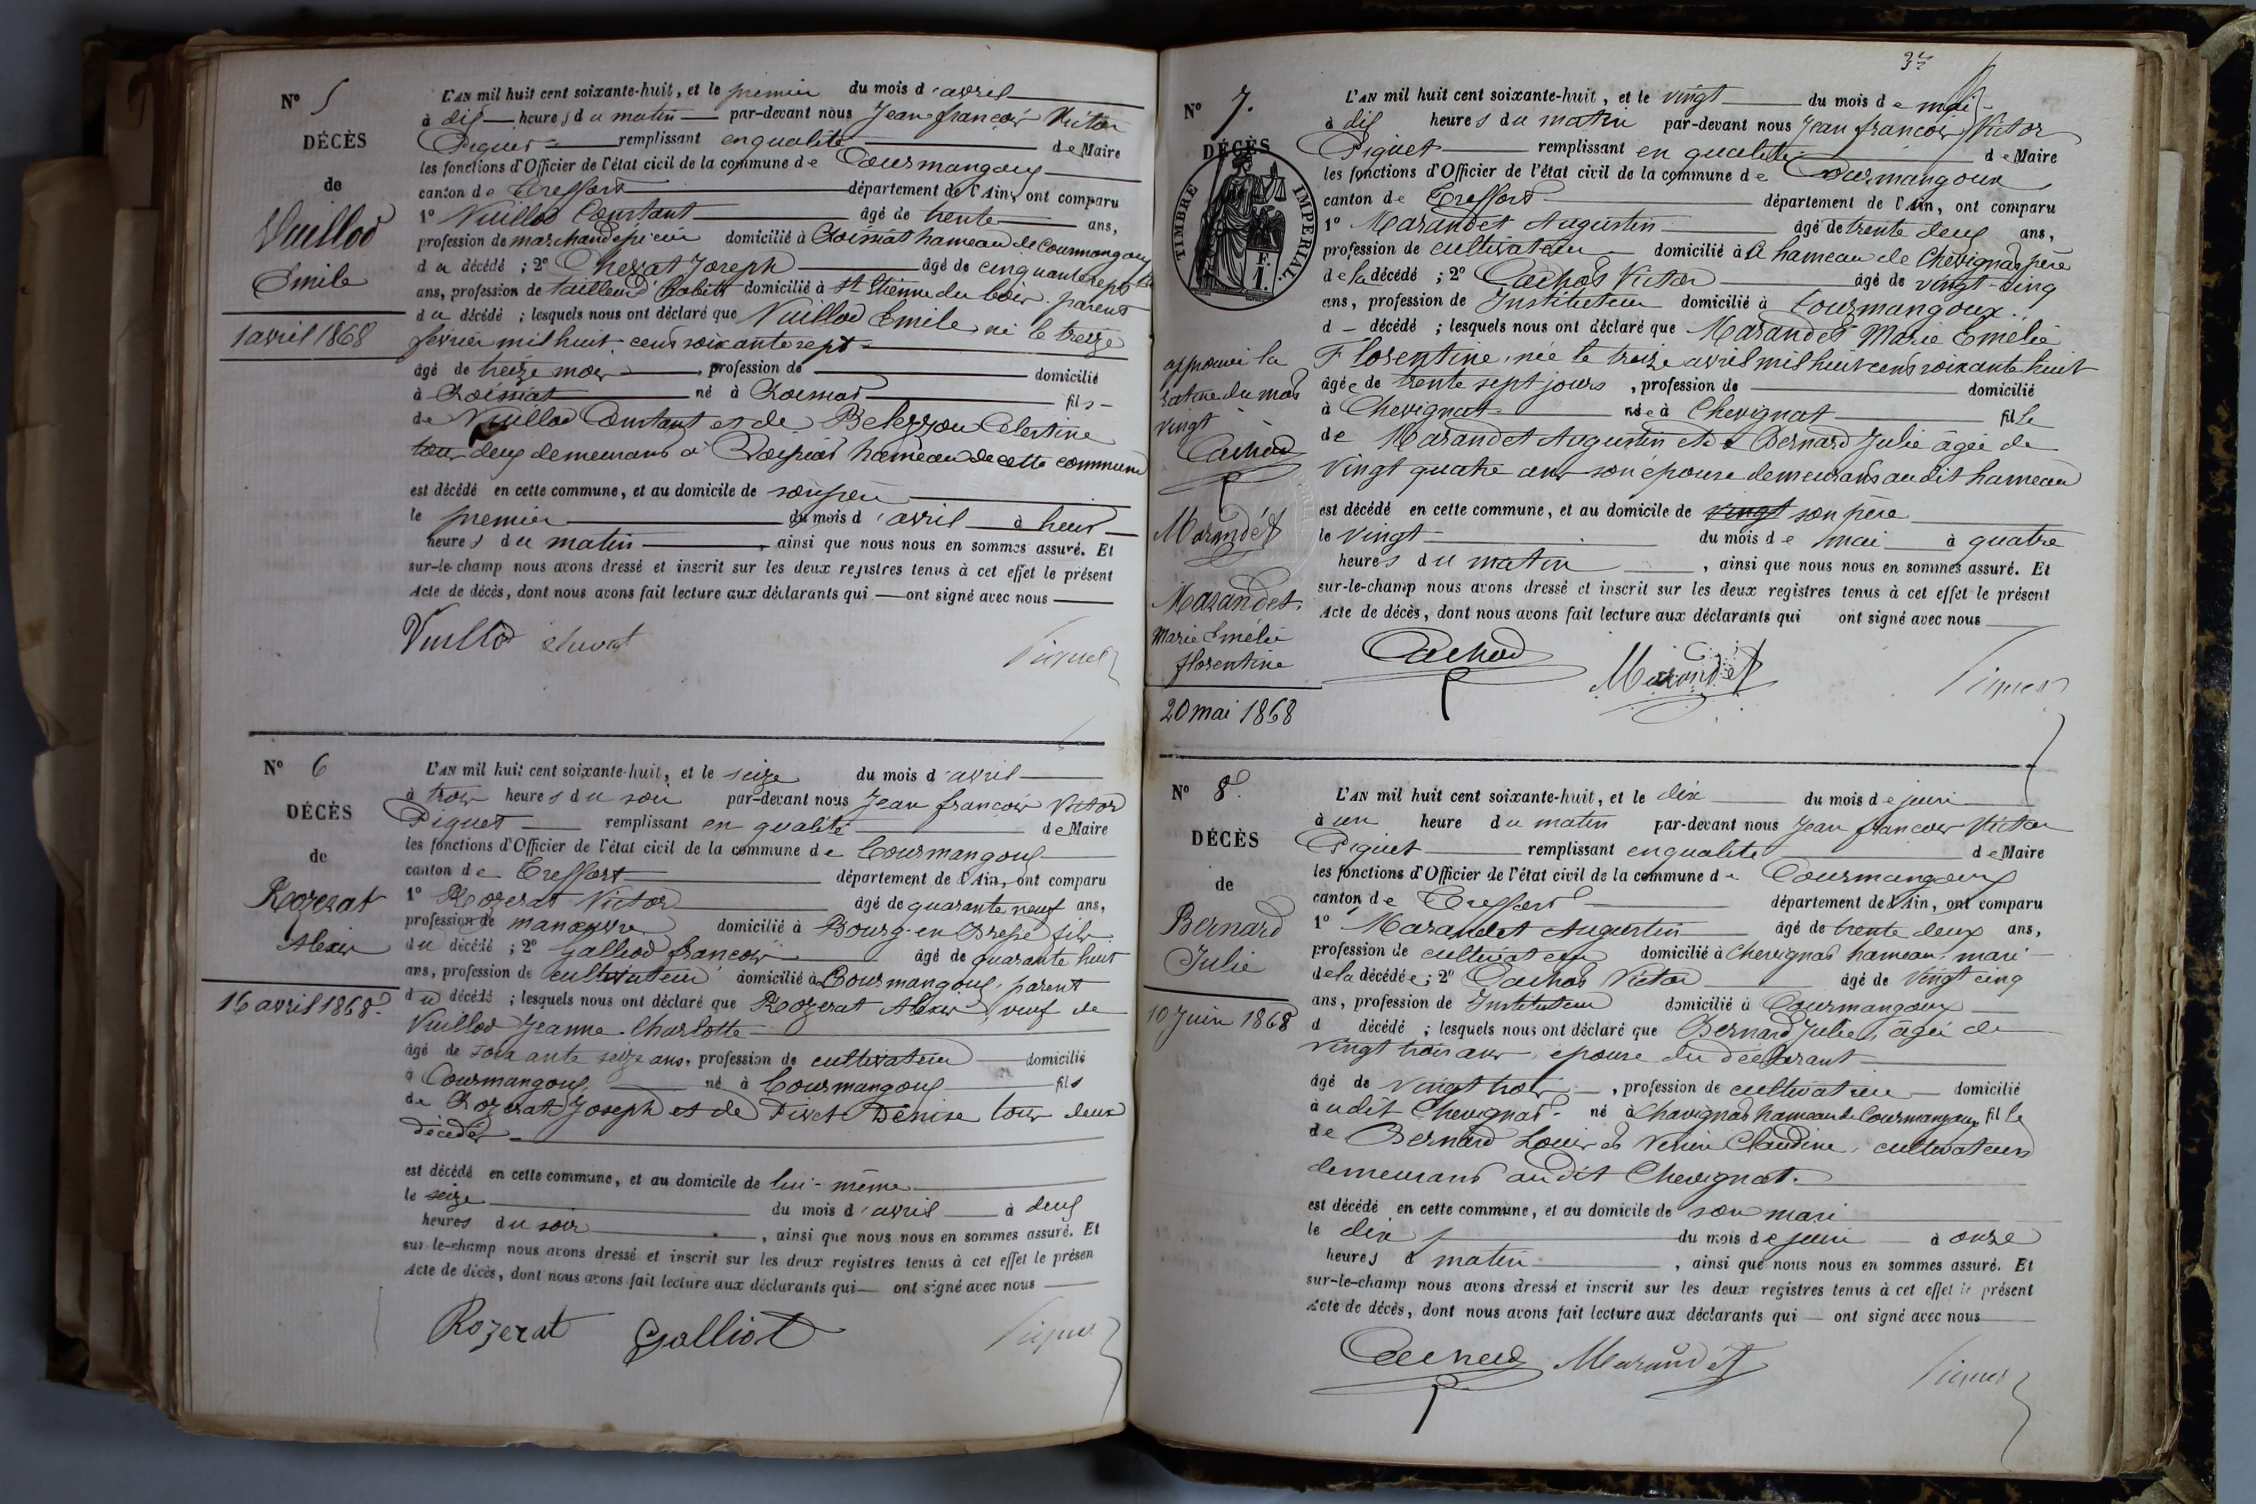 Nº 5
DÉCÈS
de
Vuillod
Emile
1 avril 1868
L'AN mil huit cent soixante-huit, et le premier du mois d'avril
à dix heures du matin par-devant nous Jean françois Victor
Piquet remplissant en qualité de Maire
les fonctions d'Officier de l'état civil de la commune de Courmangoux
canton de Treffort département de l'Ain, ont comparu
1º Vuillod Constant âgé de trente ans,
profession de marchand epicier domicilié à Roissiat hameau de Courmangoux
du décédé ; 2º Chevat Joseph âgé de cinquante sept
ans, profession de tailleur d'habits domicilié à St Etienne du bois, parent
du décédé ; lesquels nous ont déclaré que Vuillod Emile né le treize
février mil huit cent soixante sept
âgé de treize mois, profession de domicilié
à Roissiat né à Roissiat fils
de Vuillod Constant et de Celestine
tous deux demeurans à Roissiat hameau de cette commune
est décédé en cette commune, et au domicile de son père
le premier du mois d'avril à heur
heures du matin, ainsi que nous nous en sommes assuré. Et
sur-le-champ nous avons dressé et inscrit sur les deux registres tenus à cet effet le présent
Acte de décès, dont nous avons fait lecture aux déclarants qui ont signé avec nous
Vuillod chevat Piquet
Nº 6
DÉCÈS
de
Rozerat
Alexis
16 avril 1868
L'AN mil huit cent soixante-huit, et le seize du mois d'avril
à trois heures du soir par-devant nous Jean françois Victor
Piquet remplissant en qualité de Maire
les fonctions d'Officier de l'état civil de la commune de Courmangoux
canton de Treffort département de l'Ain, ont comparu
1º Rozerat Victor âgé de quarante neuf ans,
profession de manœuvre domicilié à Bourg-en-Bresse fils
du décédé ; 2º Galliod françois âgé de quarante huit
ans, profession de cultivateur domicilié à Courmangoux, parent
du décédé ; lesquels nous ont déclaré que Rozerat Alexis, veuf de
Vuillod Jeanne Charlotte
âgé de soixante seize ans, profession de cultivateur domicilié
à Courmangoux né à Courmangoux fils
de Rozerat Joseph et de Denise tous deux
décédés
est décédé en cette commune, et au domicile de lui-même
le seize du mois d'avril à deux
heures du soir, ainsi que nous nous en sommes assuré. Et
sur-le-champ nous avons dressé et inscrit sur les deux registres tenus à cet effet le présen
Acte de décès, dont nous avons fait lecture aux déclarants qui ont signé avec nous
Rozerat Galliot Piquet
37
Nº 7.
DÉCÈS
TIMBRE IMPERIAL
1 F.
approuvé la
rature du mot
vingt
Cachod
Marandet
Marandet
Marie Emélie
florentine
20 mai 1868
L'AN mil huit cent soixante-huit, et le vingt du mois de mai
à dix heures du matin par-devant nous Jean françois Victor
Piquet remplissant en qualité de Maire
les fonctions d'Officier de l'état civil de la commune de Courmangoux
canton de Treffort département de l'Ain, ont comparu
1º Marandet Augustin âgé de trente deux ans,
profession de cultivateur domicilié à hameau de Chevignat, père
de la décédé ; 2º Cachod Victor âgé de vingt-cinq
ans, profession de Instituteur domicilié à Courmangoux.
d décédé ; lesquels nous ont déclaré que Marandet Marie Emélie
Florentine, née le treize avril mil huit cent soixante huit
âgée de trente sept jours, profession de domicilié
à Chevignat née à Chevignat fille
de Marandet Augustin et de Bernard Julie âgée de
vingt quatre ans son épouse demeurans audit hameau
est décédé en cette commune, et au domicile de vingt son père
le vingt du mois de mai à quatre
heures du matin, ainsi que nous nous en sommes assuré. Et
sur-le-champ nous avons dressé et inscrit sur les deux registres tenus à cet effet le présent
Acte de décès, dont nous avons fait lecture aux déclarants qui ont signé avec nous
Cachod Marandet Piquet
Nº 8
DÉCÈS
de
Bernard
Julie
10 Juin 1868
L'AN mil huit cent soixante-huit, et le dix du mois de juin
à un heure du matin par-devant nous Jean françois Victor
Piquet remplissant en qualité de Maire
les fonctions d'Officier de l'état civil de la commune de Courmangoux
canton de Treffort département de l'Ain, ont comparu
1º Marandet Augustin âgé de trente deux ans,
profession de cultivateur domicilié à Chevignat hameau, mari
de la décédée ; 2º Cachod Victor âgé de vingt cinq
ans, profession de Instituteur domicilié à Courmangoux
d décédé ; lesquels nous ont déclaré que Bernard Julie, âgée de
vingt trois ans, épouse du déclarant
âgé de vingt trois, profession de cultivateur domicilié
à udit Chevignat né à Chavignat hameau de Courmangoux fille
de Bernard Louis et Claudine, cultivateurs
demeurans audit Chevignat.
est décédé en cette commune, et au domicile de son mari
le dix du mois de juin à onze
heures d matin, ainsi que nous nous en sommes assuré. Et
sur-le-champ nous avons dressé et inscrit sur les deux registres tenus à cet effet le présent
Acte de décès, dont nous avons fait lecture aux déclarants qui ont signé avec nous
Cachod Marandet Piquet